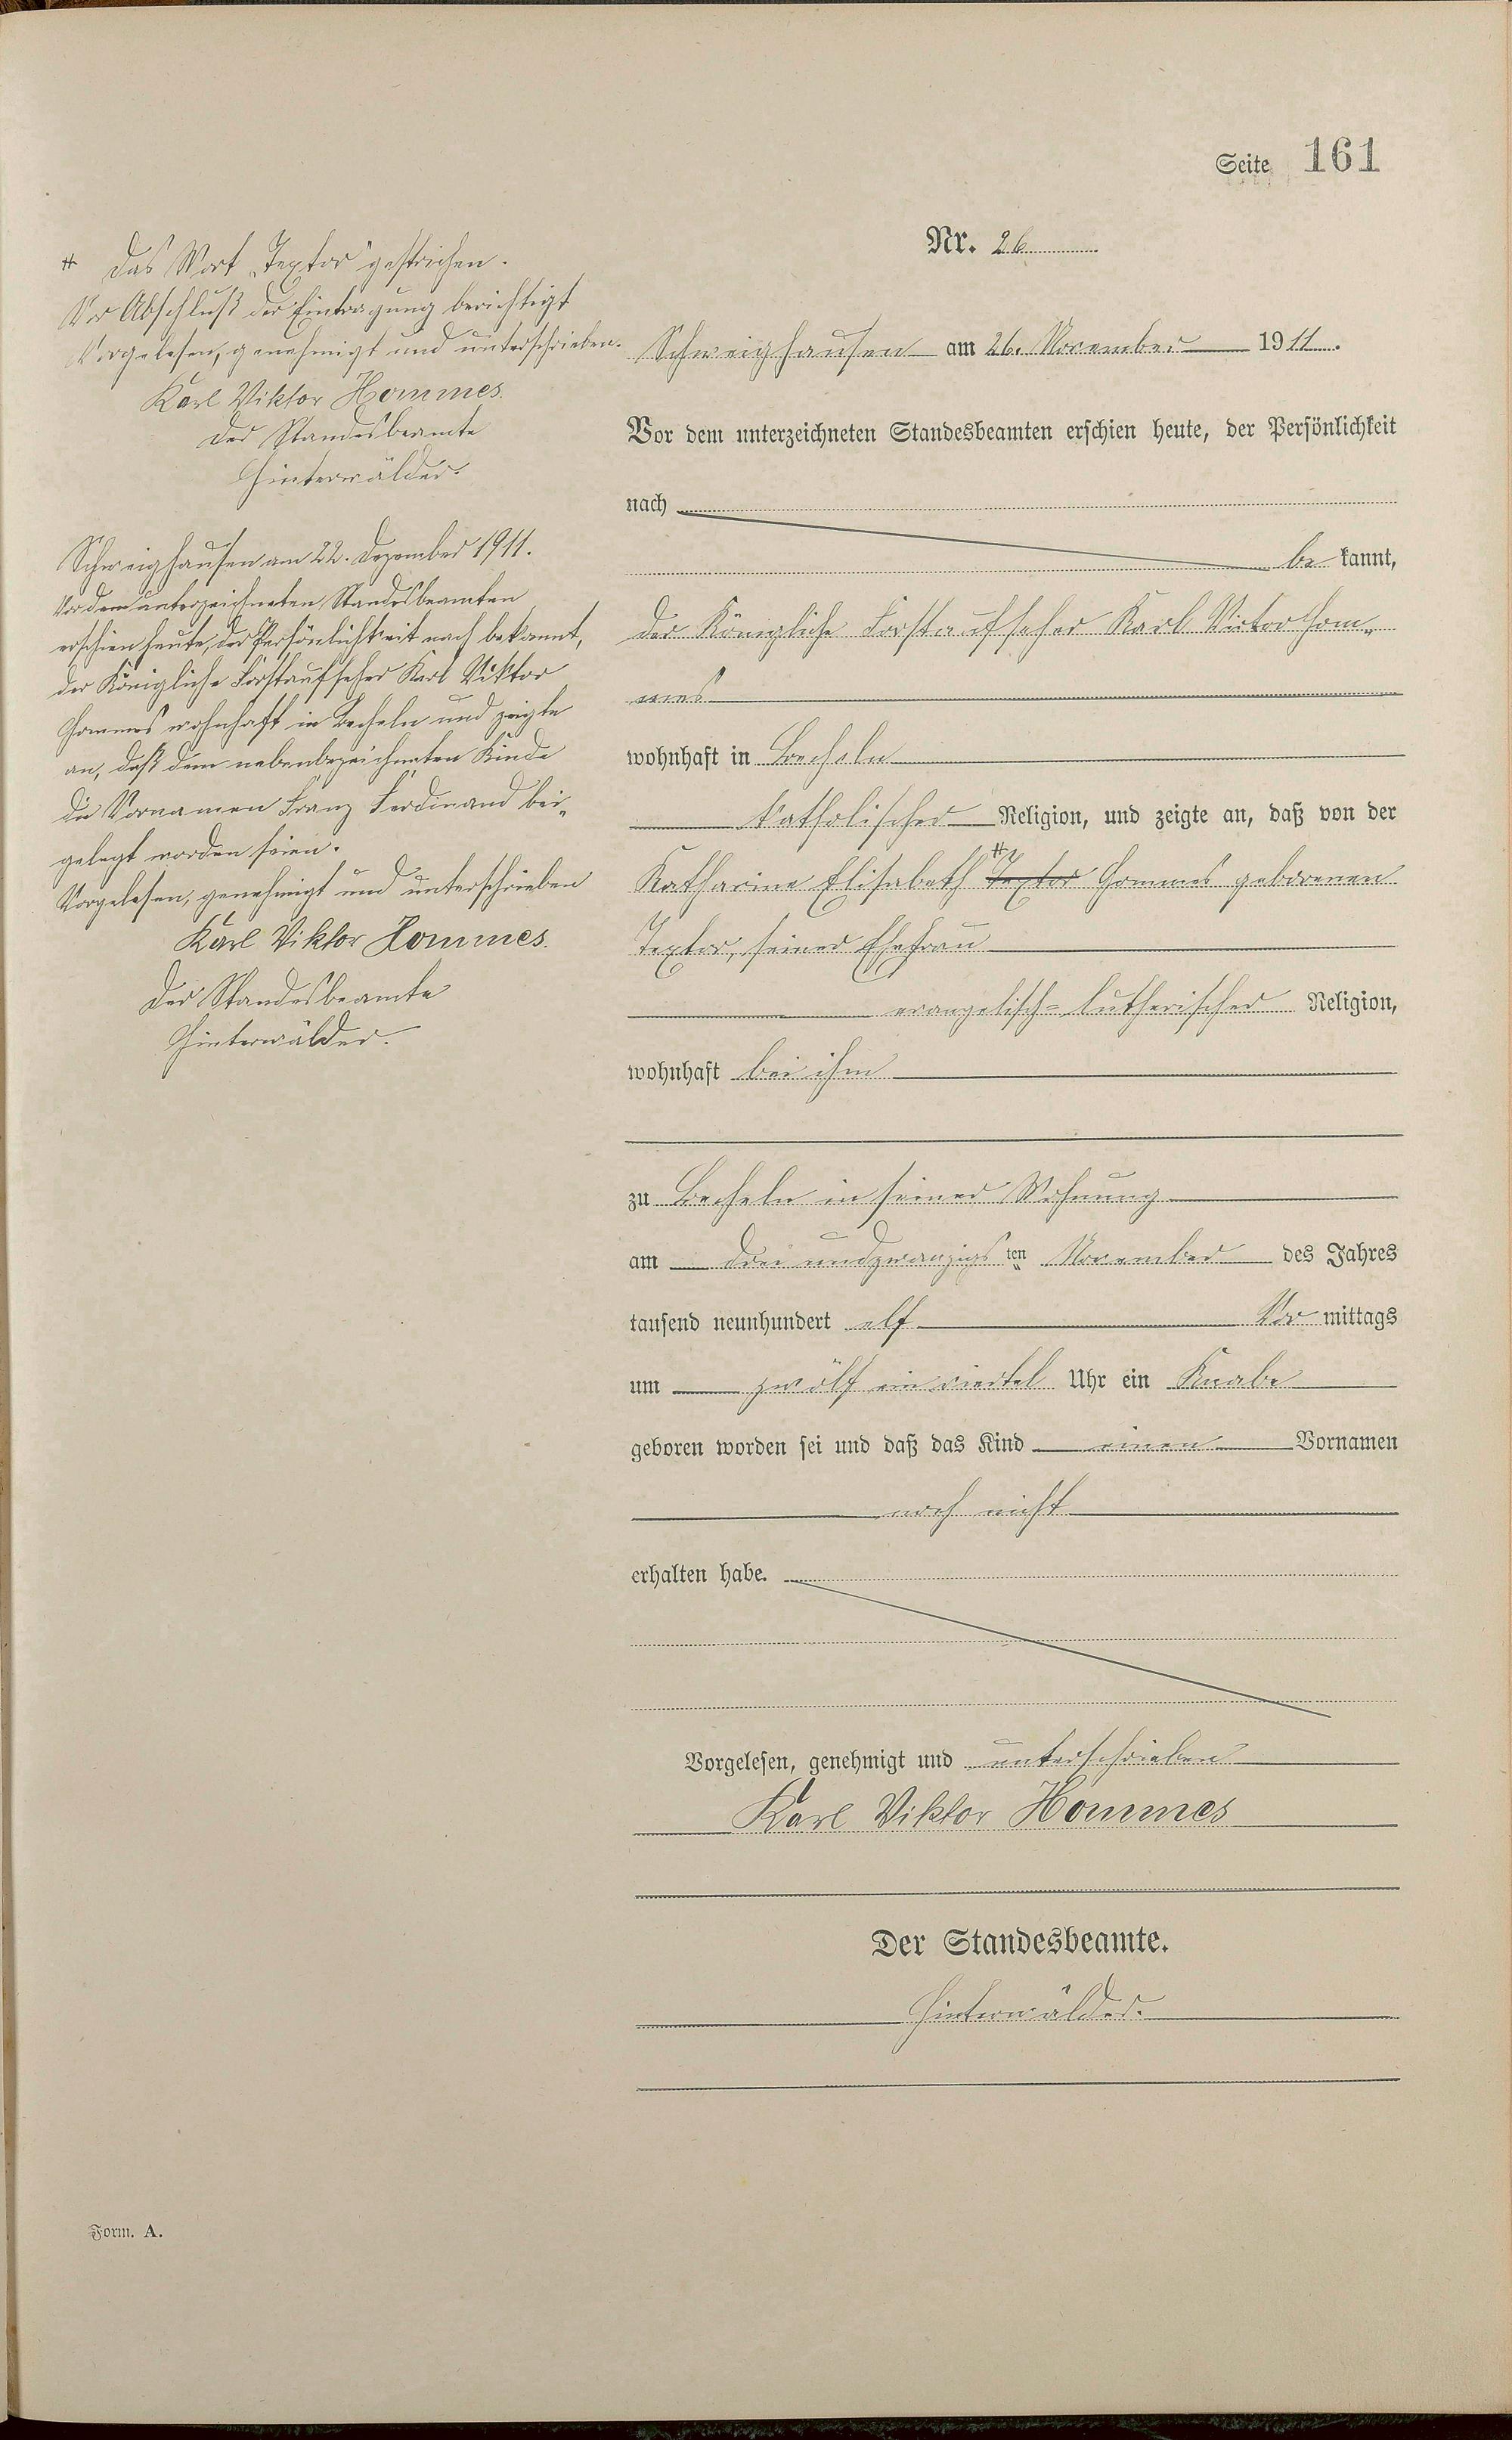 Seite 161
Nr. 26
# Das Wort „Textor" gestrichen.
Vor Abschluß der Eintragung berichtigt
Vorgelesen, genehmigt und unterschrieben.
Karl Viktor Hommes.
Der Standesbeamte
Hinterwälder.
Schweighausen am 22. Dezember 1911.
Vor dem unterzeichneten Standesbeamten
erschien heute, der Persönlichkeit nach bekannt,
der Königliche Forstaufseher Karl Viktor
Hommes wohnhaft in Becheln und zeigte
an, daß dem nebenbezeichneten Kinde
die Vornamen Franz Ferdinand bei-
gelegt worden seien.
Vorgelesen, genehmigt und unterschrieben
Karl Viktor Hommes.
Der Standesbeamte
Hinterwälder.
Schweighausen am 26. November 1911.
Vor dem unterzeichneten Standesbeamten erschien heute, der Persönlichkeit
nach
be kannt,
der Königliche Forstaufseher Karl Victor Hom-
mes
wohnhaft in Becheln
katholischer Religion, und zeigte an, daß von der
#
Katharina Elisabeth Textor Hommes geborenen
Textor, seiner Ehefrau
evangelisch-lutherischer Religion,
wohnhaft bei ihm
zu Becheln in seiner Wohnung
am drei undzwanzigs ten November des Jahres
tausend neunhundert elf Vor mittags
um zwölf ein viertel Uhr ein Knabe
geboren worden sei und daß das Kind einen Vornamen
noch nicht
erhalten habe.
Vorgelesen, genehmigt und unterschrieben
Karl Viktor Hommes
Der Standesbeamte.
Hinterwälder.
Form. A.